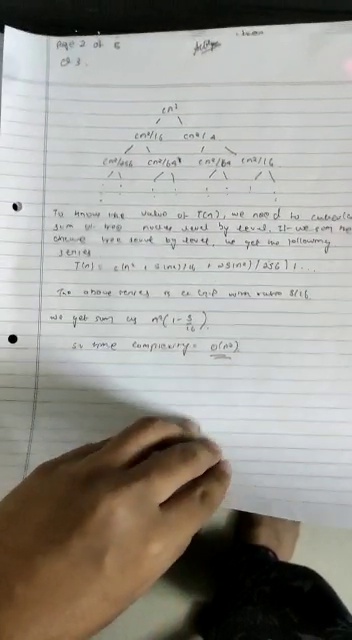 Page 2 of 6
Q3.
cn²
cn²/16 cn²/4
cn²/256 cn²/64 cn²/64 cn²/16
To know the value of T(n), we need to calculate
sum of tree nodes level by level. If we sum the
above tree level by level, we get the following
series
T(n) = c(n² + 5(n²)/16 + 25(n²)/256) + ...
The above series is a G.P with ratio 5/16
we get sum as n²(1 - 5/16).
so time complexity = O(n²)